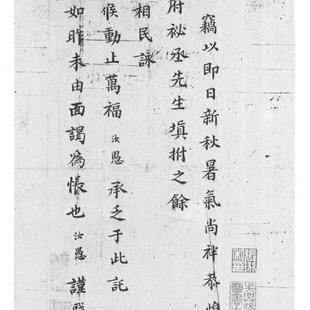 竊以即日新秋暑氣尚祥恭惟
府祕丞先生填拊之餘
相民詠
候動止萬福汝愚承乏于此託
如昨未由面謁為悵也汝愚謹